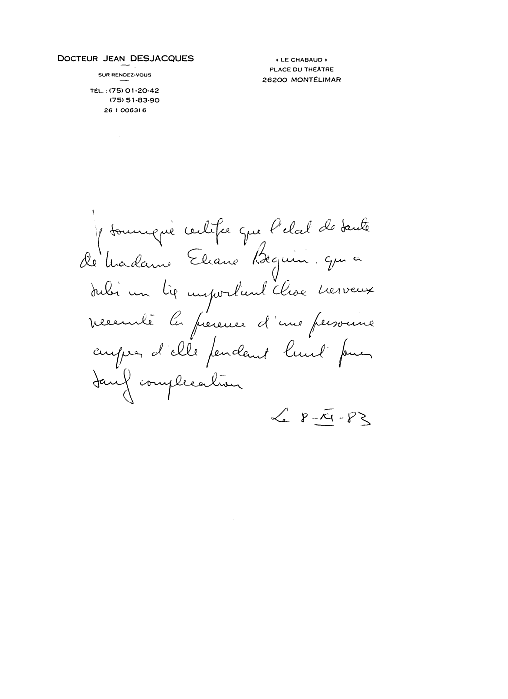 DOCTEUR JEAN DESJACQUES
SUR RENDEZ-VOUS
TÉL. : (75) 01-20-42
(75) 51-83-90
26 1 00631 6
« LE CHABAUD »
PLACE DU THÉATRE
26200 MONTÉLIMAR
je soussigné certifie que l'état de santé
de Madame Eliane Béguin. qui a
subi un très important choc nerveux
nécessite la présence d'une personne
auprès d'elle pendant huit jours
sauf complication
Le 8-XI-83